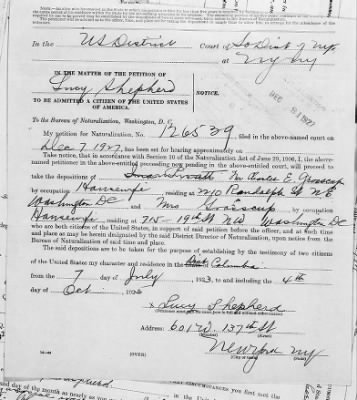 In the US District Court of So Dist of NY
at NY NY
IN THE MATTER OF THE PETITION OF
Lucy Shepherd
TO BE ADMITTED A CITIZEN OF THE UNITED STATES
OF AMERICA.
NOTICE.
DEC 8 1927
To the Bureau of Naturalization, Washington, D. C.
My petition for Naturalization, No. 126529 filed in the above-named court on
Dec 7 1927, has been set for hearing approximately on
Take notice, that in accordance with Section 10 of the Naturalization Act of June 29, 1906, I, the above-
named petitioner in the above-entitled proceeding now pending in the above-entitled court, will proceed to
take the depositions of
by occupation Housewife, residing at 2210 Randolph St NE
Washington DC and Mrs by occupation
Housewife, residing at 715-19th St NE Washington DC
who are both citizens of the United States, in support of said petition before the officer, and at such time
and place as may be herein designated by the said District Director of Naturalization, upon notice from the
Bureau of Naturalization of said time and place.
The said depositions are to be taken for the purpose of establishing by the testimony of two citizens
of the United States my character and residence in the Dist Columbia
from the 7 day of July, 1923, and including the 4th
day of Oct 192
x Lucy Shepherd
Address: 601 W. 137th St
New York NY
(OVER)